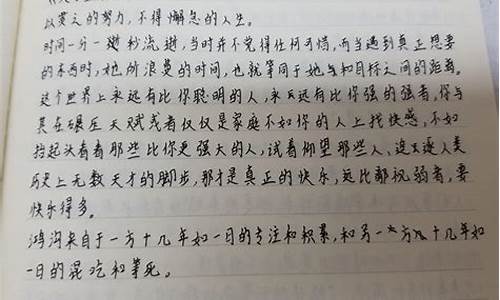 以莫之的努力，不得懈怠的人生。
时间一分一秒流逝，当时并不觉得任何可惜，而当遇到真正想要
的东西时，她所浪曼的时间，也就等同于她与和目标之间的距离。
这个世界上永远有比你聪明的人，永远有比你强的强者，你与
其在碾压天赋或者仅仅是家庭不如你的人上找快感，不如
抬起头看着那些比你更强大的人，试着仰望那些人、追逐人类
历史上无数天才的脚步，那才是真正的快乐，远比鄙视弱者，要
快乐得多。
鸿沟来自于一方十几年如一日的专注和积累，和另一方十几年如
一日的混吃和等死。